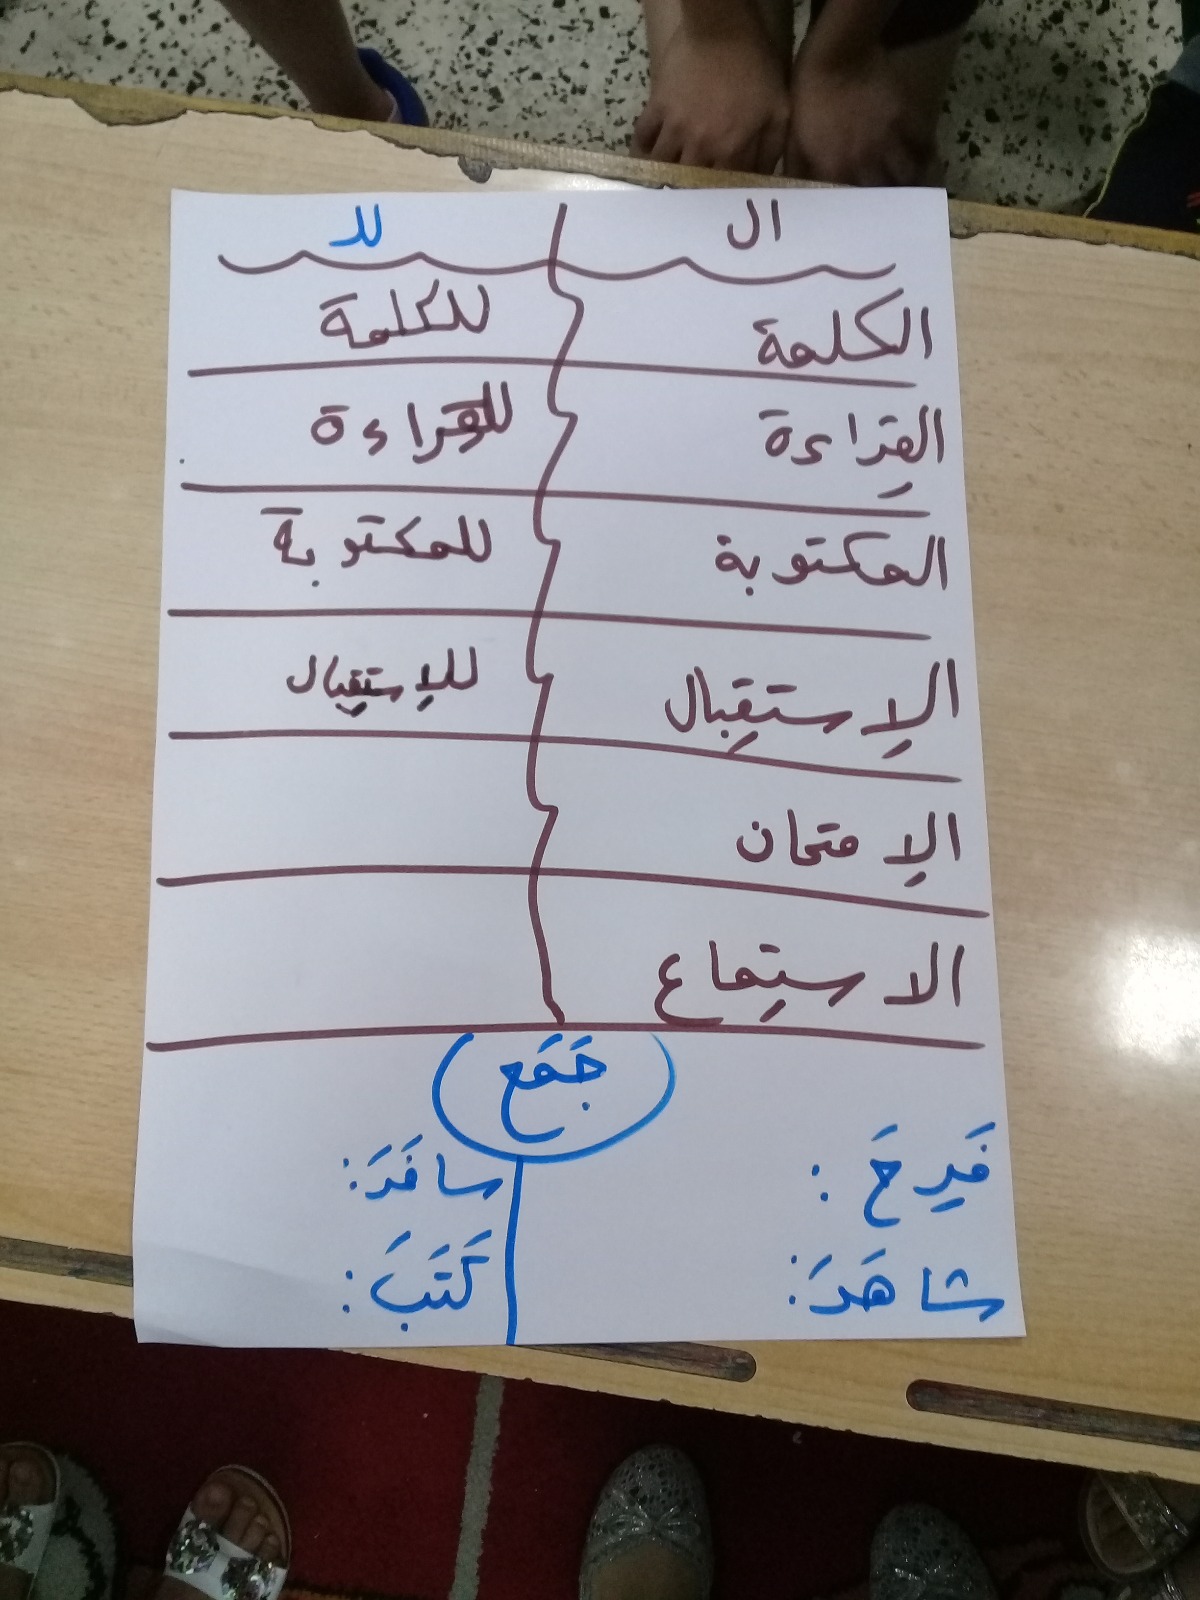 ال للـ
الكلمة للكلمة
القراءة للقراءة
المكتوبة للمكتوبة
الإستقبال للإستقبال
الإمتحان
الاستماع
جَمَع
فَرِحَ : سافَرَ :
شاهَدَ : كَتَبَ :